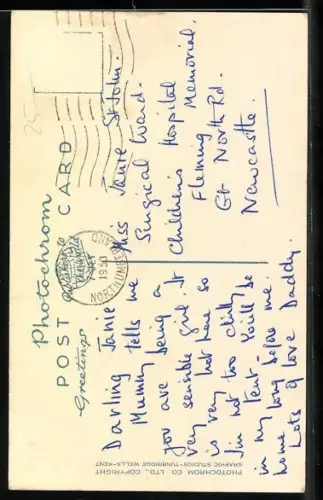 Photochrom
POST CARD
Greetings
25
1953
NORTHUMBERLAND
Miss Janie St John.
Surgical Ward.
Children's Hospital
Fleming Memorial.
Gt North Rd.
Newcastle.
Darling Janie
Mummy tells me
you are being a
very sensible girl. It
is very hot here so
I'm not too chilly
in my tent. You'll be
home long before me.
Lots of love Daddy.
PHOTOCHROM CO. LTD., COPYRIGHT
GRAPHIC STUDIOS-TUNBRIDGE WELLS-KENT